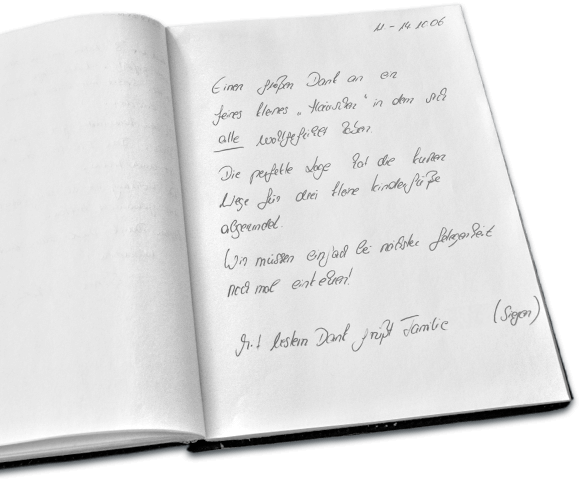 11. - 14.10.06
Einen großen Dank an ein
feines kleines „Häuschen" in dem sich
alle wohlgefühlt haben.
Die perfekte Lage hat die kurzen
Wege für drei kleine Kinderfüße
abgerundet.
Wir müssen einfach bei nächster Gelegenheit
noch mal einkehren!
Mit bestem Dank grüßt Familie
(Siegen)